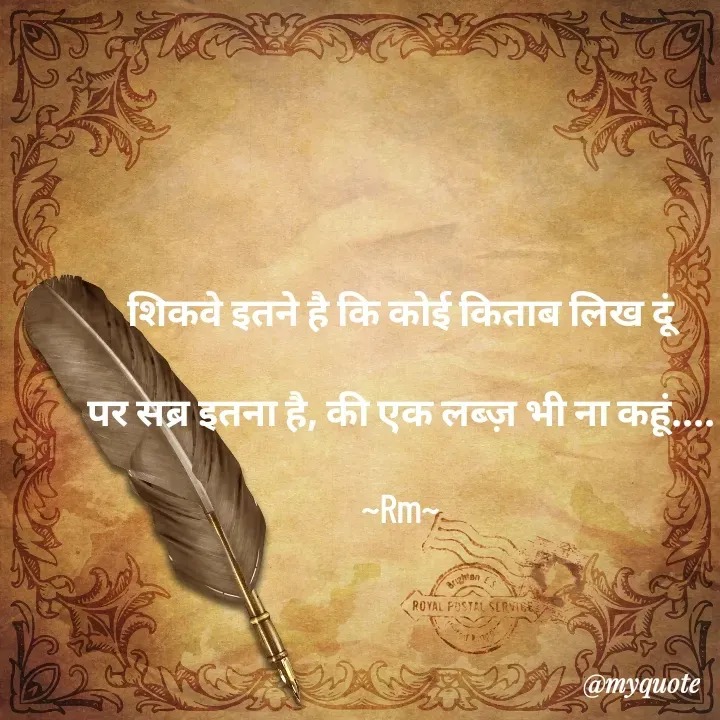 शिकवे इतने है कि कोई किताब लिख दूं
पर सब्र इतना है, की एक लब्ज़ भी ना कहूं....
~Rm~
ROYAL POSTAL SERVICE
@myquote